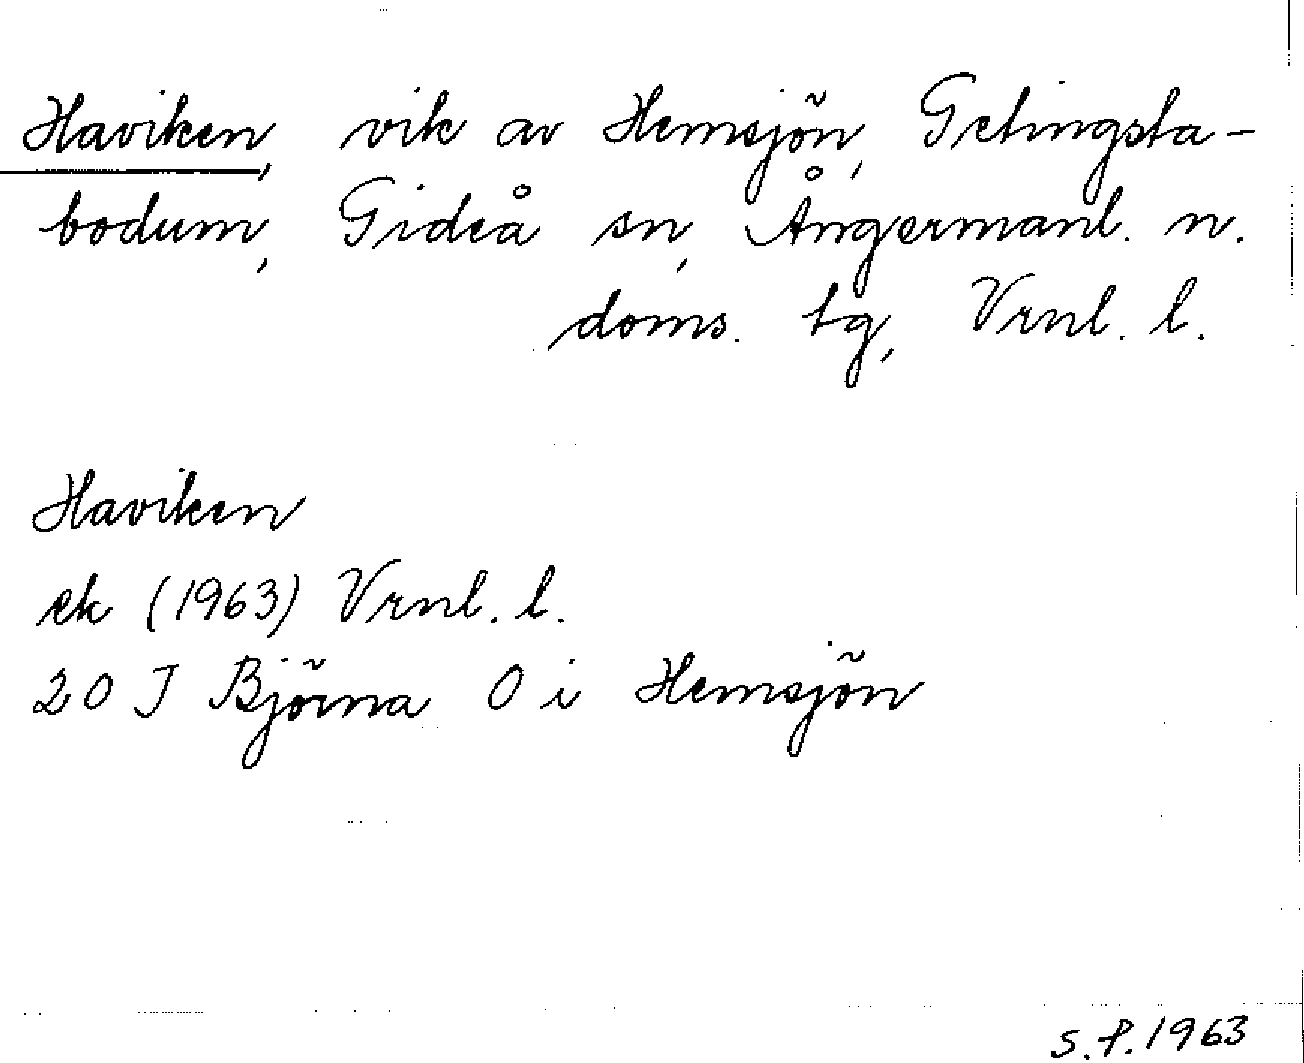 Haviken, vik av Hemsjön, Getingsta-
bodum, Gideå sn, Ångermanl. n.
doms. tg, Vrnl. l.
Haviken
ek (1963) Vrnl. l.
20 J Björna O i Hemsjön
S.P. 1963